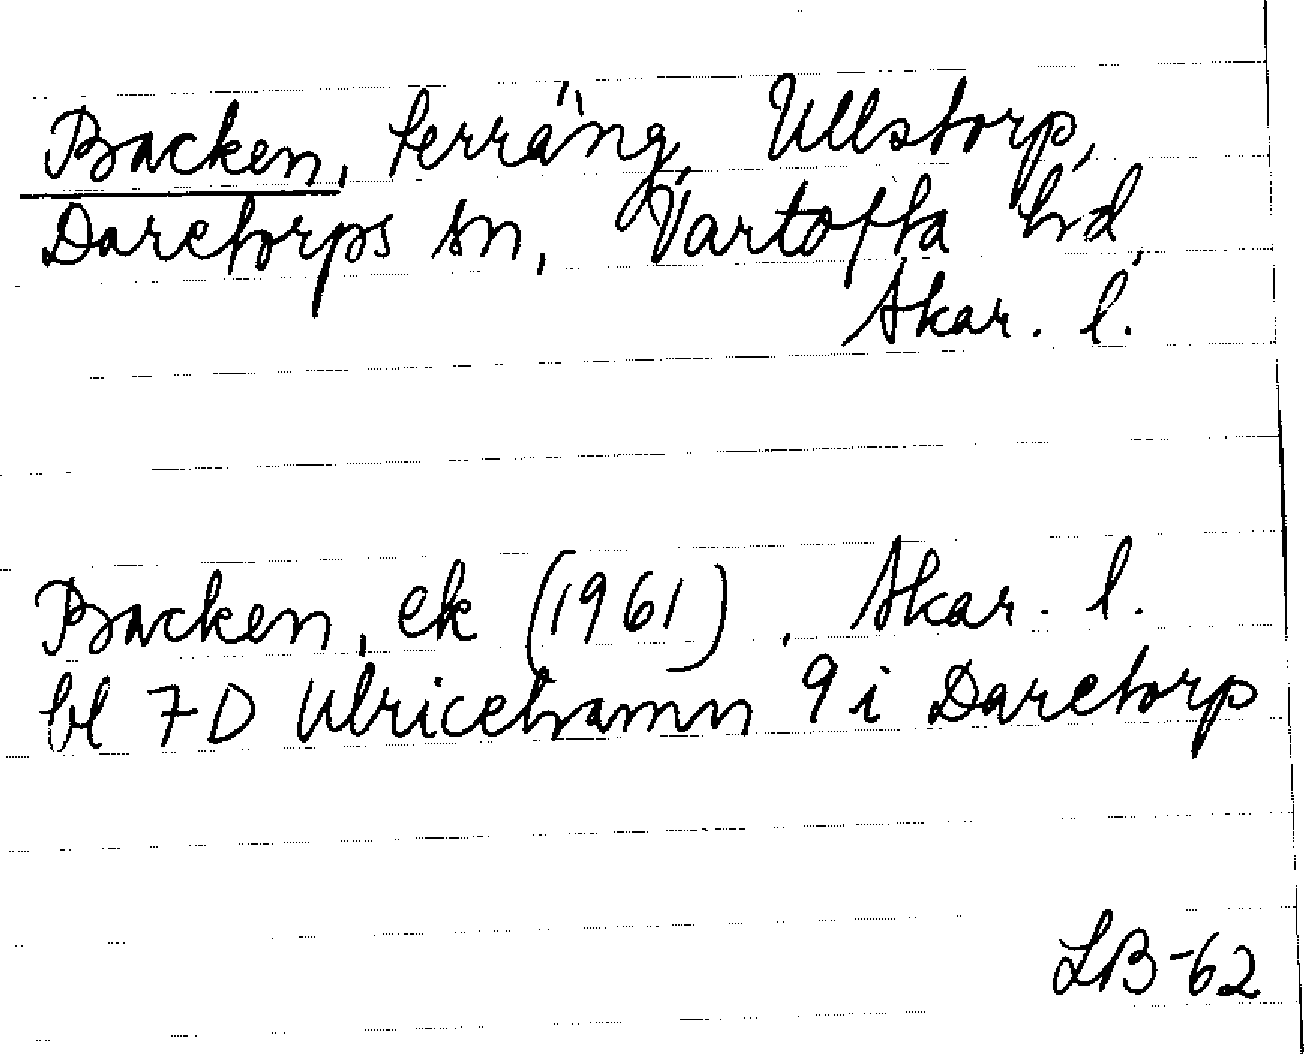 Backen, terräng, Ullstorp,
Daretorps sn, Vartofta hd,
Skar. l.
Backen, ek (1961), Skar. l.
bl 7D Ulricehamn 9i Daretorp
LB-62